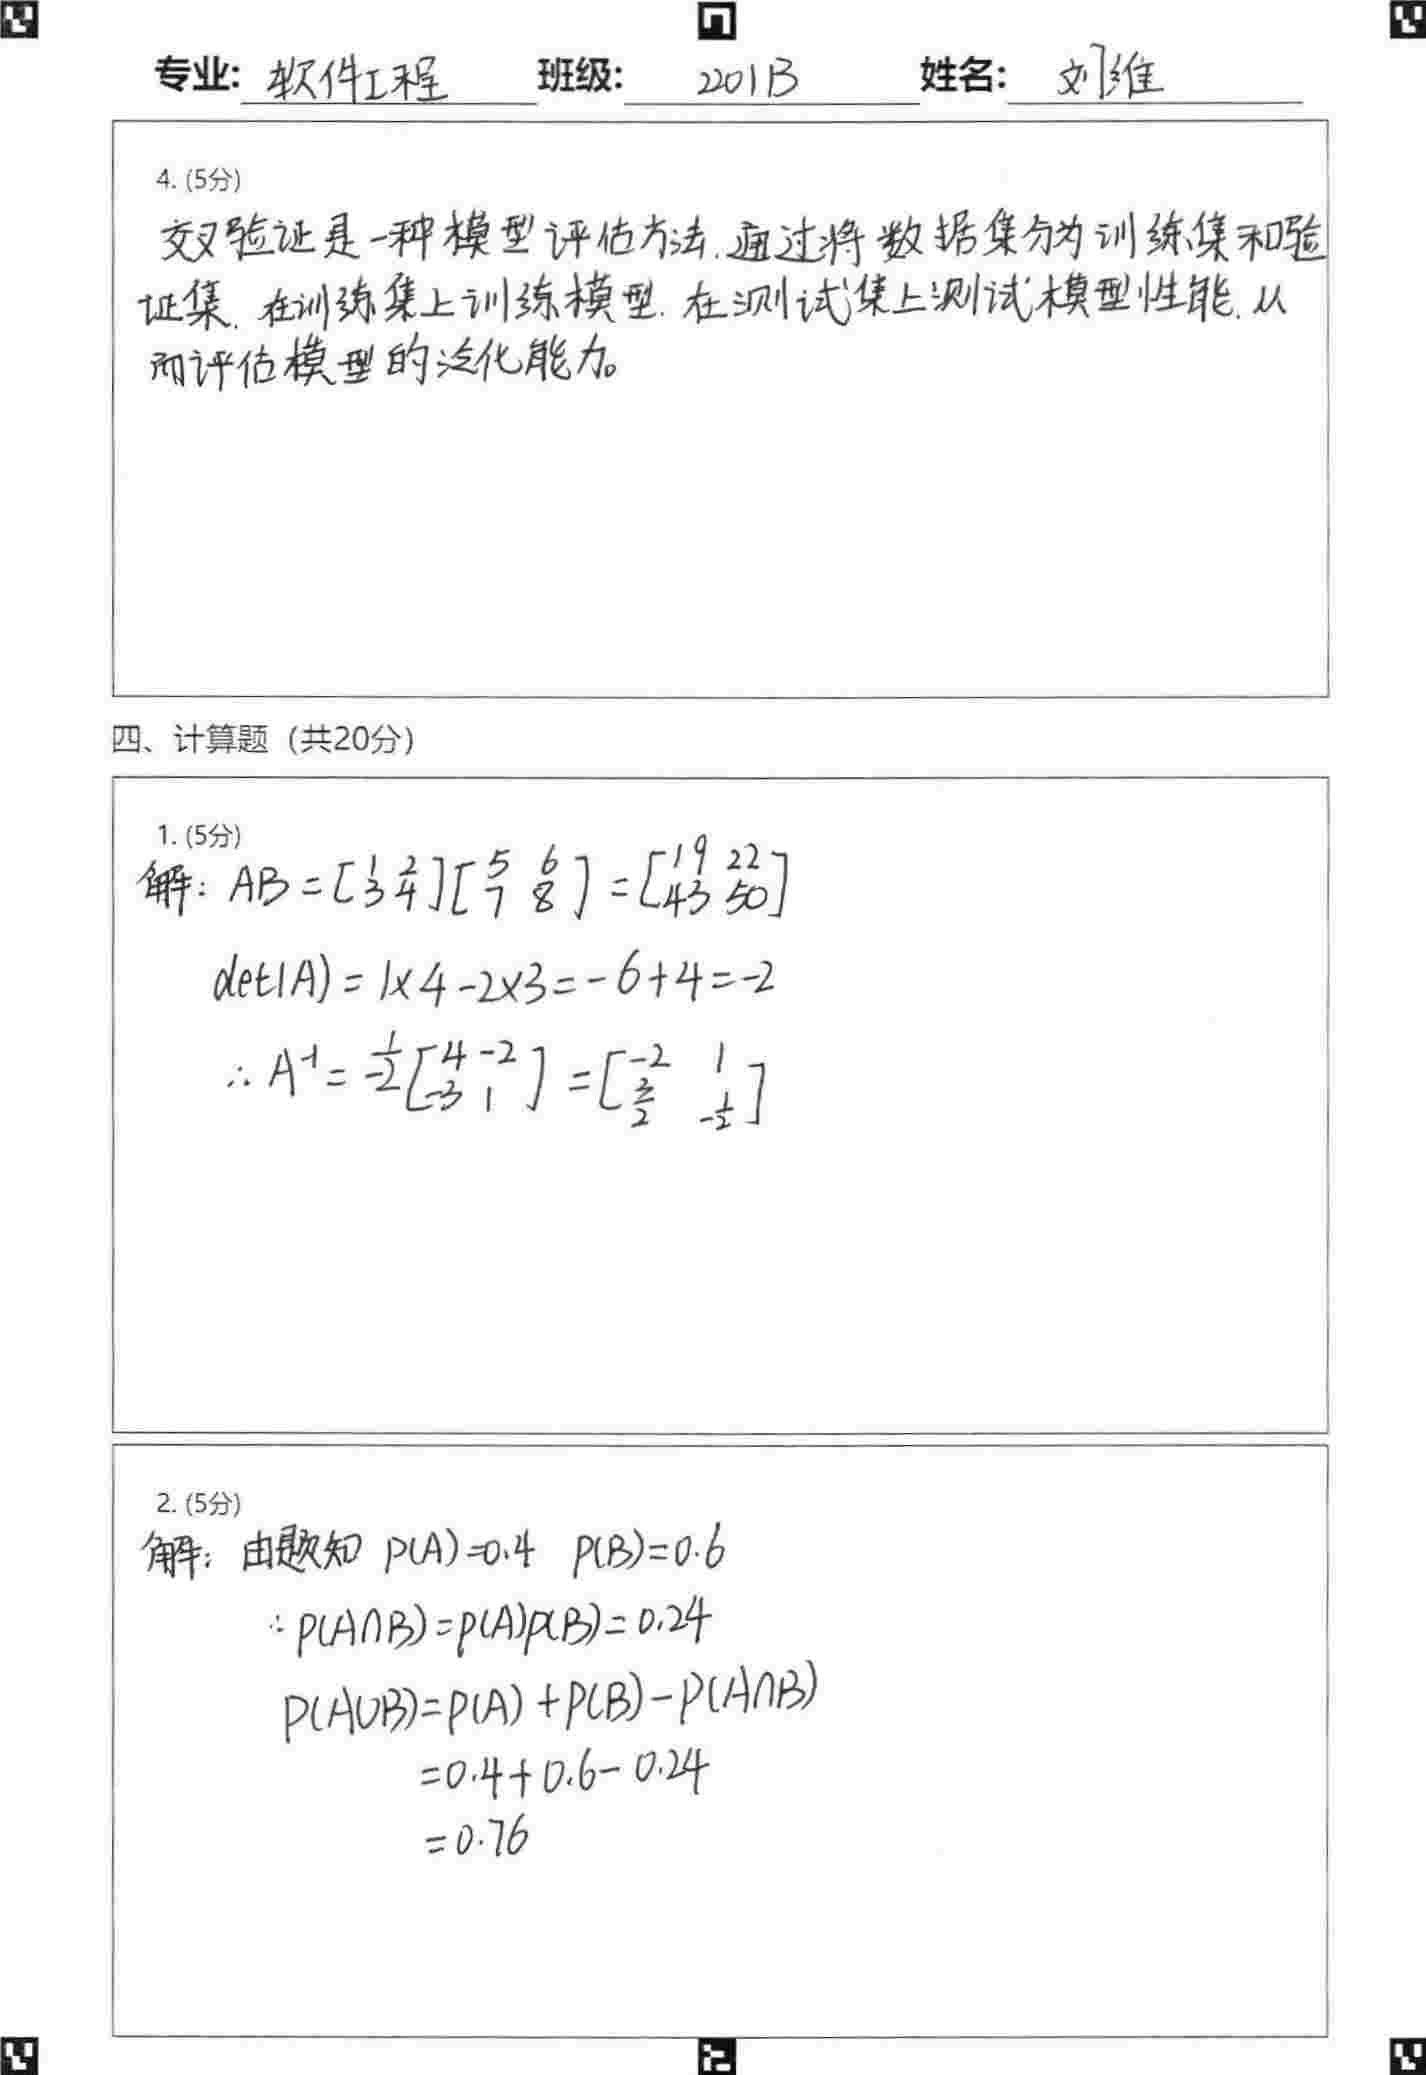 专业: 软件工程 班级: 2201B 姓名: 刘维
4. (5分)
交叉验证是一种模型评估方法.通过将数据集分为训练集和验
证集.在训练集上训练模型.在测试集上测试模型性能.从
而评估模型的泛化能力。
四、计算题（共20分）
1. (5分)
解: AB = [1 2; 3 4][5 6; 7 8] = [19 22; 43 50]
det(A) = 1×4-2×3=-6+4=-2
∴ A⁻¹ = 1/-2 [4 -2; -3 1] = [-2 1; 3/2 -1/2]
2. (5分)
解: 由题知 P(A)=0.4 P(B)=0.6
∴ P(A∩B)=P(A)P(B)=0.24
P(A∪B)=P(A)+P(B)-P(A∩B)
=0.4+0.6-0.24
=0.76